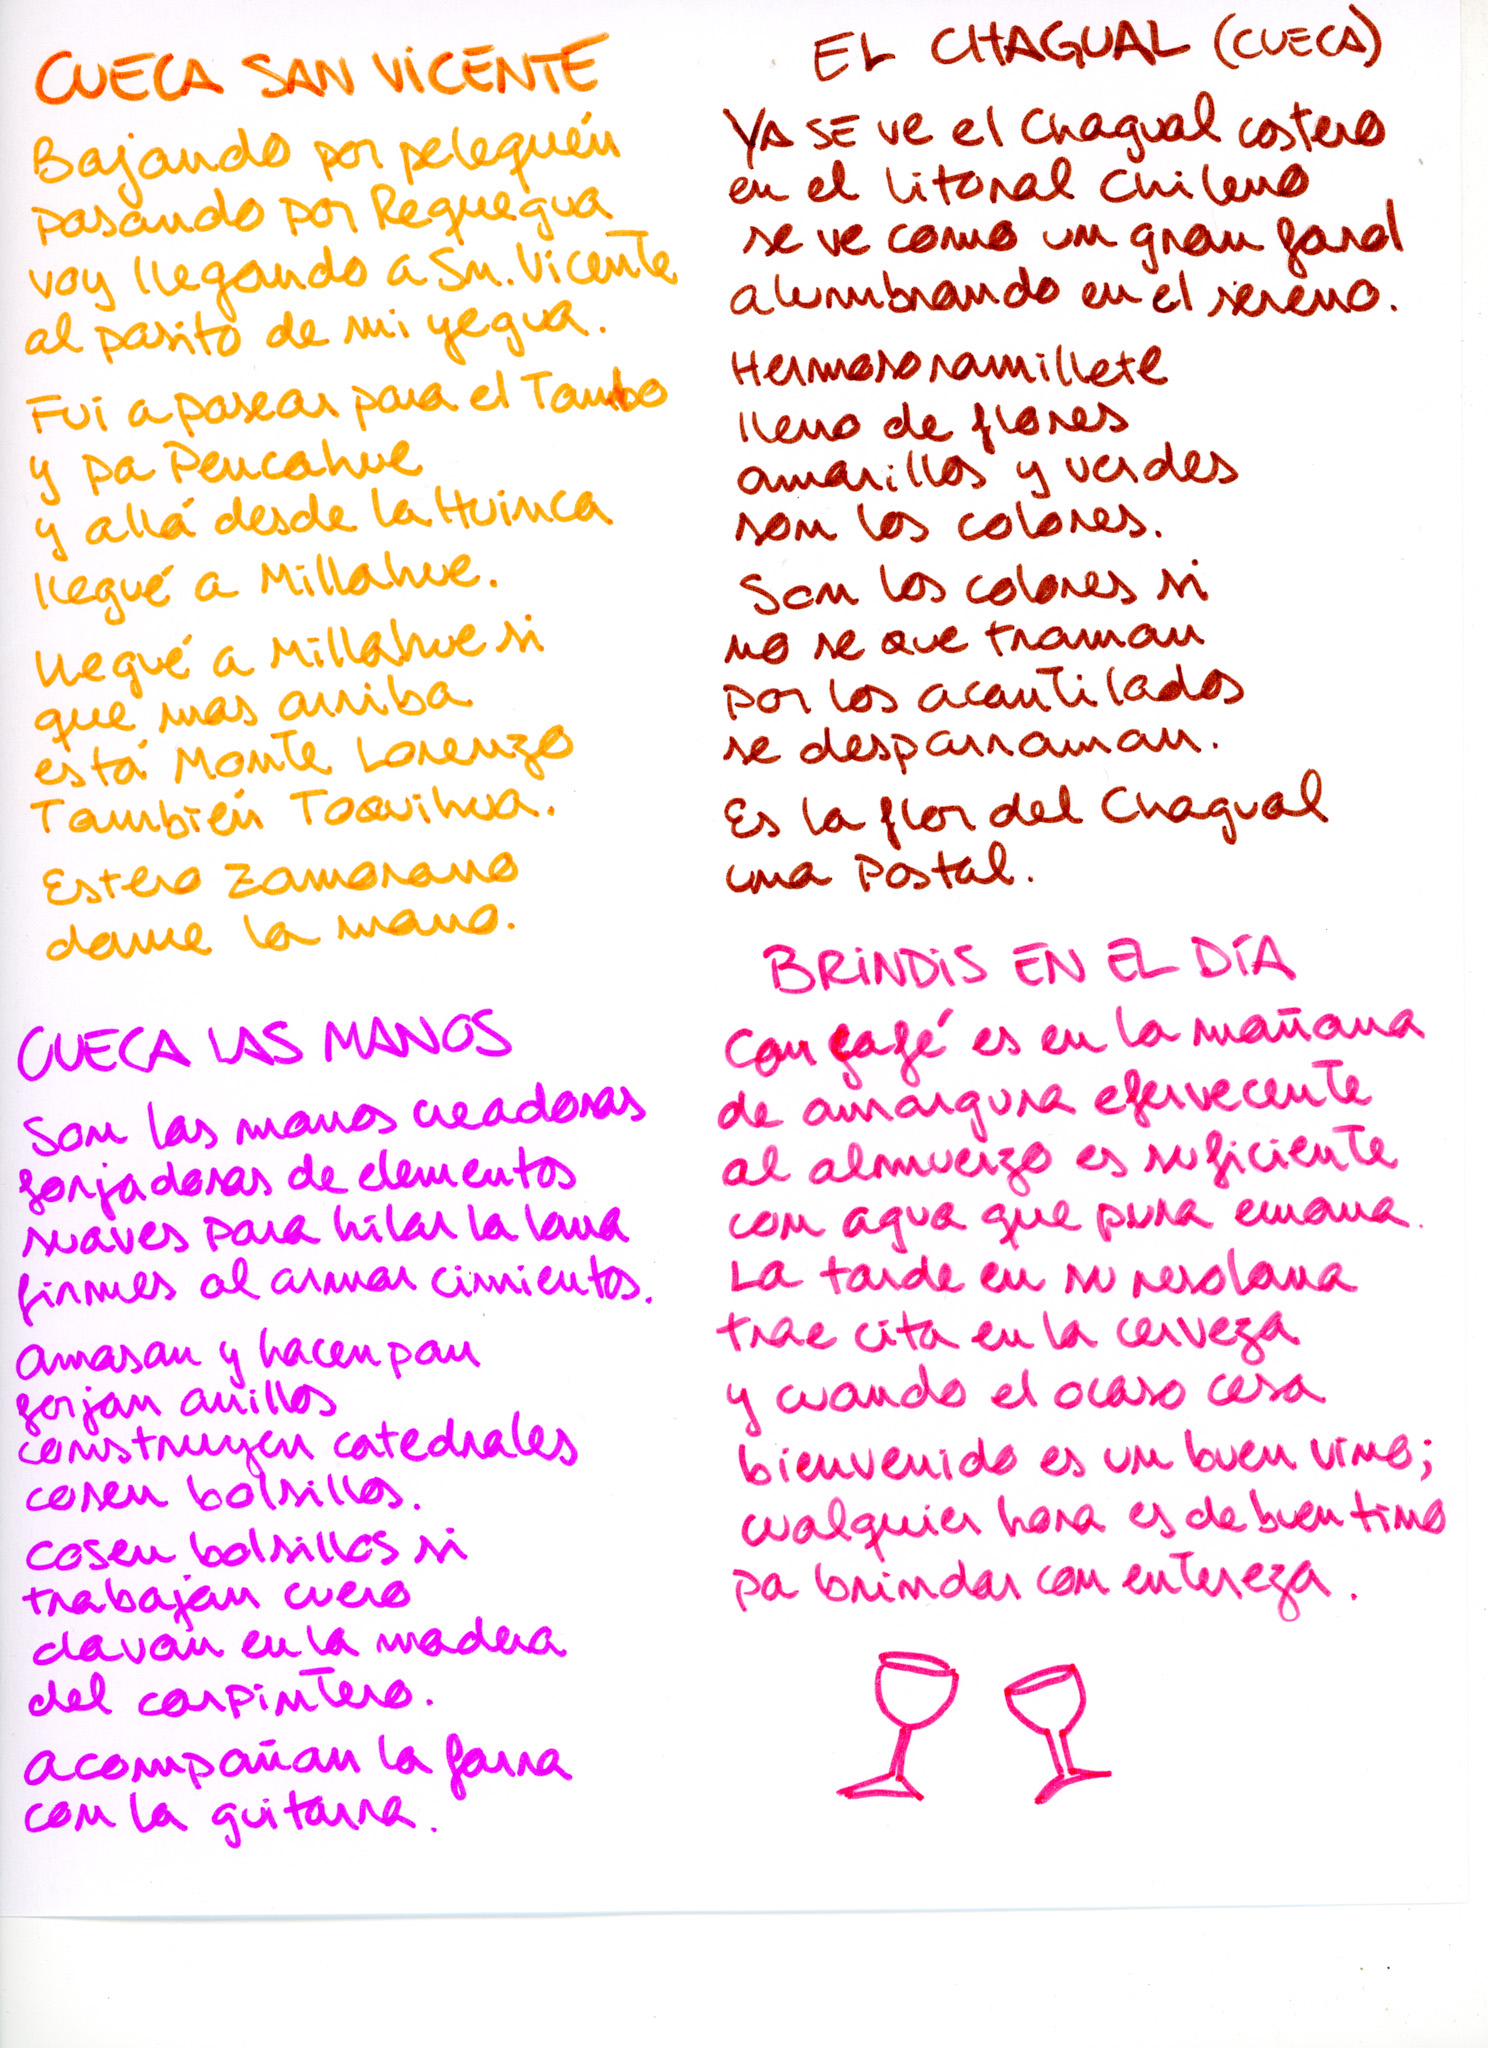 CUECA SAN VICENTE
Bajando por pelequén
pasando por Requegua
voy llegando a Sn. Vicente
al pasito de mi yegua.
Fui a pasear para el Tambo
y pa Pencahue
y allá desde la Huinca
llegué a Millahue.
llegué a Millahue si
que mas arriba
está Monte Lorenzo
También Toquihua.
Estero Zamorano
dame la mano.
CUECA LAS MANOS
Son las manos creadoras
forjadoras de elementos
suaves para hilar la lana
firmes al armar cimientos.
amasan y hacen pan
forjan anillos
construyen catedrales
cosen bolsillos.
cosen bolsillos si
trabajan cuero
clavan en la madera
del carpintero.
acompañan la farra
con la guitarra.
EL CHAGUAL (CUECA)
YA SE ve el Chagual costero
en el litoral chileno
se ve como un gran farol
alumbrando en el sereno.
Hermoso ramillete
lleno de flores
amarillos y verdes
son los colores.
Son los colores si
no se que traman
por los acantilados
se desparraman.
Es la flor del Chagual
una Postal.
BRINDIS EN EL DÍA
Con café es en la mañana
de amargura efervecente
al almuerzo es suficiente
con agua que pura emana.
La tarde en su resolana
trae cita en la cerveza
y cuando el ocaso cesa
bienvenido es un buen vino;
cualquier hora es de buen tino
pa brindar con entereza.